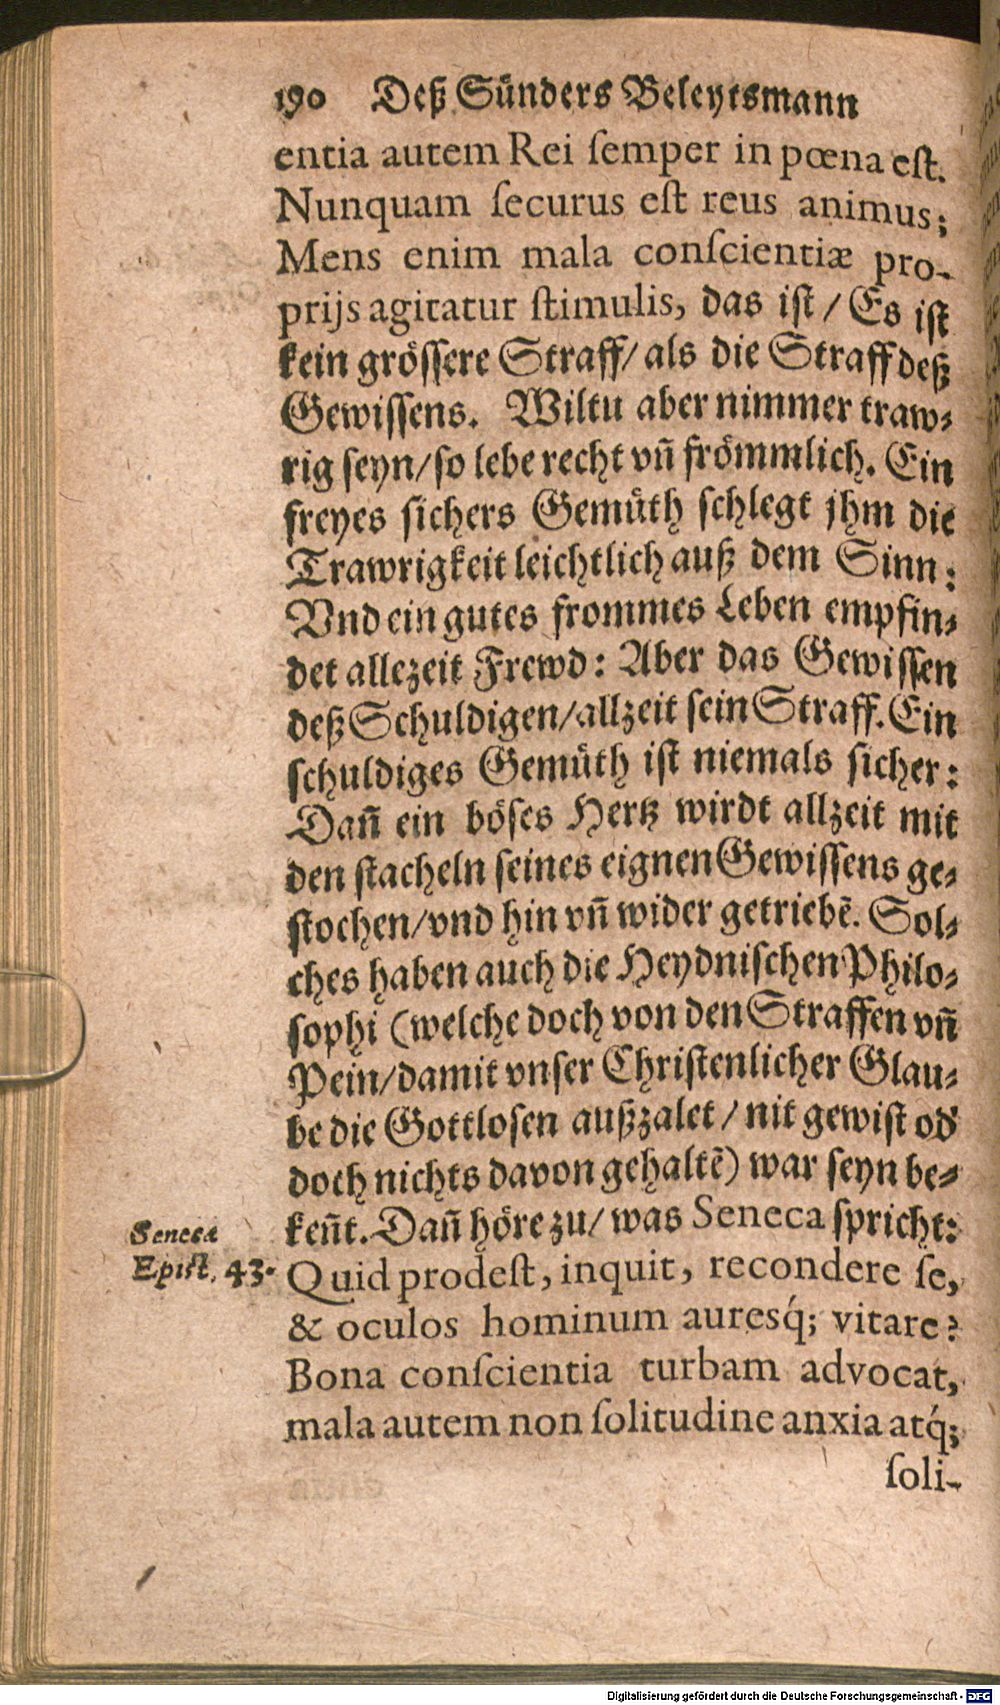 190 Deß Sünders Beleytsmann
entia autem Rei ſemper in pœna eſt.
Nunquam ſecurus eſt reus animus;
Mens enim mala conſcientiæ pro-
prijs agitatur ſtimulis, das iſt / Es iſt
kein gröſſere Straff / als die Straff deß
Gewiſſens. Wiltu aber nimmer traw-
rig ſeyn / ſo lebe recht vñ frömmlich. Ein
freyes ſichers Gemüth ſchlegt jhm die
Trawrigkeit leichtlich auß dem Sinn:
Vnd ein gutes frommes Leben empfin-
det allezeit Frewd: Aber das Gewiſſen
deß Schuldigen / allzeit ſein Straff. Ein
ſchuldiges Gemüth iſt niemals ſicher:
Dañ ein böſes Hertz wirdt allzeit mit
den ſtacheln ſeines eignen Gewiſſens ge-
ſtochen / vnd hin vñ wider getriebẽ. Sol-
ches haben auch die Heydniſchen Philo-
ſophi (welche doch von den Straffen vñ
Pein / damit vnſer Chriſtenlicher Glau-
be die Gottloſen außzalet / nit gewiſt od'
doch nichts davon gehaltẽ) war ſeyn be-
keñt. Dañ höre zu / was Seneca ſpricht:
Seneca
Epiſt. 43.
Quid prodeſt, inquit, recondere ſe,
& oculos hominum auresq́; vitare?
Bona conſcientia turbam advocat,
mala autem non ſolitudine anxia atq́;
ſoli-
Digitalisierung gefördert durch die Deutsche Forschungsgemeinschaft - DFG